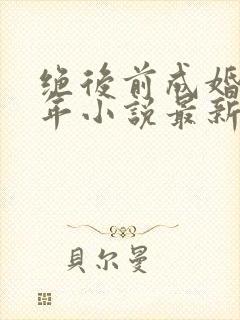 绝後前成婚
年小說最新
貝尔曼